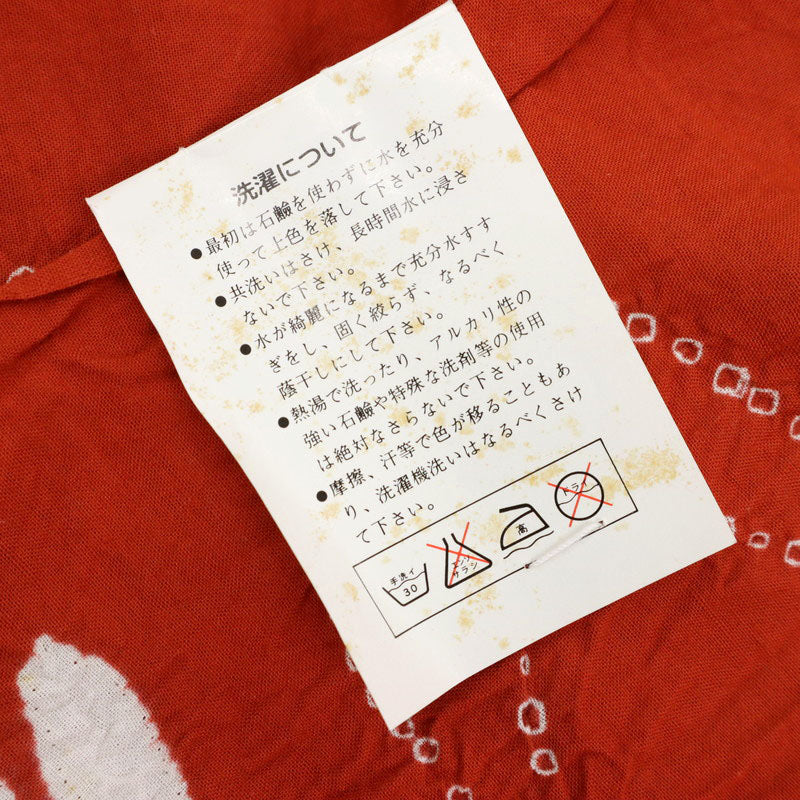 洗濯について
●最初は石鹼を使わずに水を充分
使って上色を落して下さい。
●共洗いはさけ、長時間水に浸さ
ないで下さい。
●水が綺麗になるまで充分水すす
ぎをし、固く絞らず、なるべく
蔭干しにして下さい。
●熱湯で洗ったり、アルカリ性の
強い石鹼や特殊な洗剤等の使用
は絶対なさらないで下さい。
●摩擦、汗等で色が移ることもあ
り、洗濯機洗いはなるべくさけ
て下さい。
手洗イ
30
エンソ
サラシ
高
ドライ